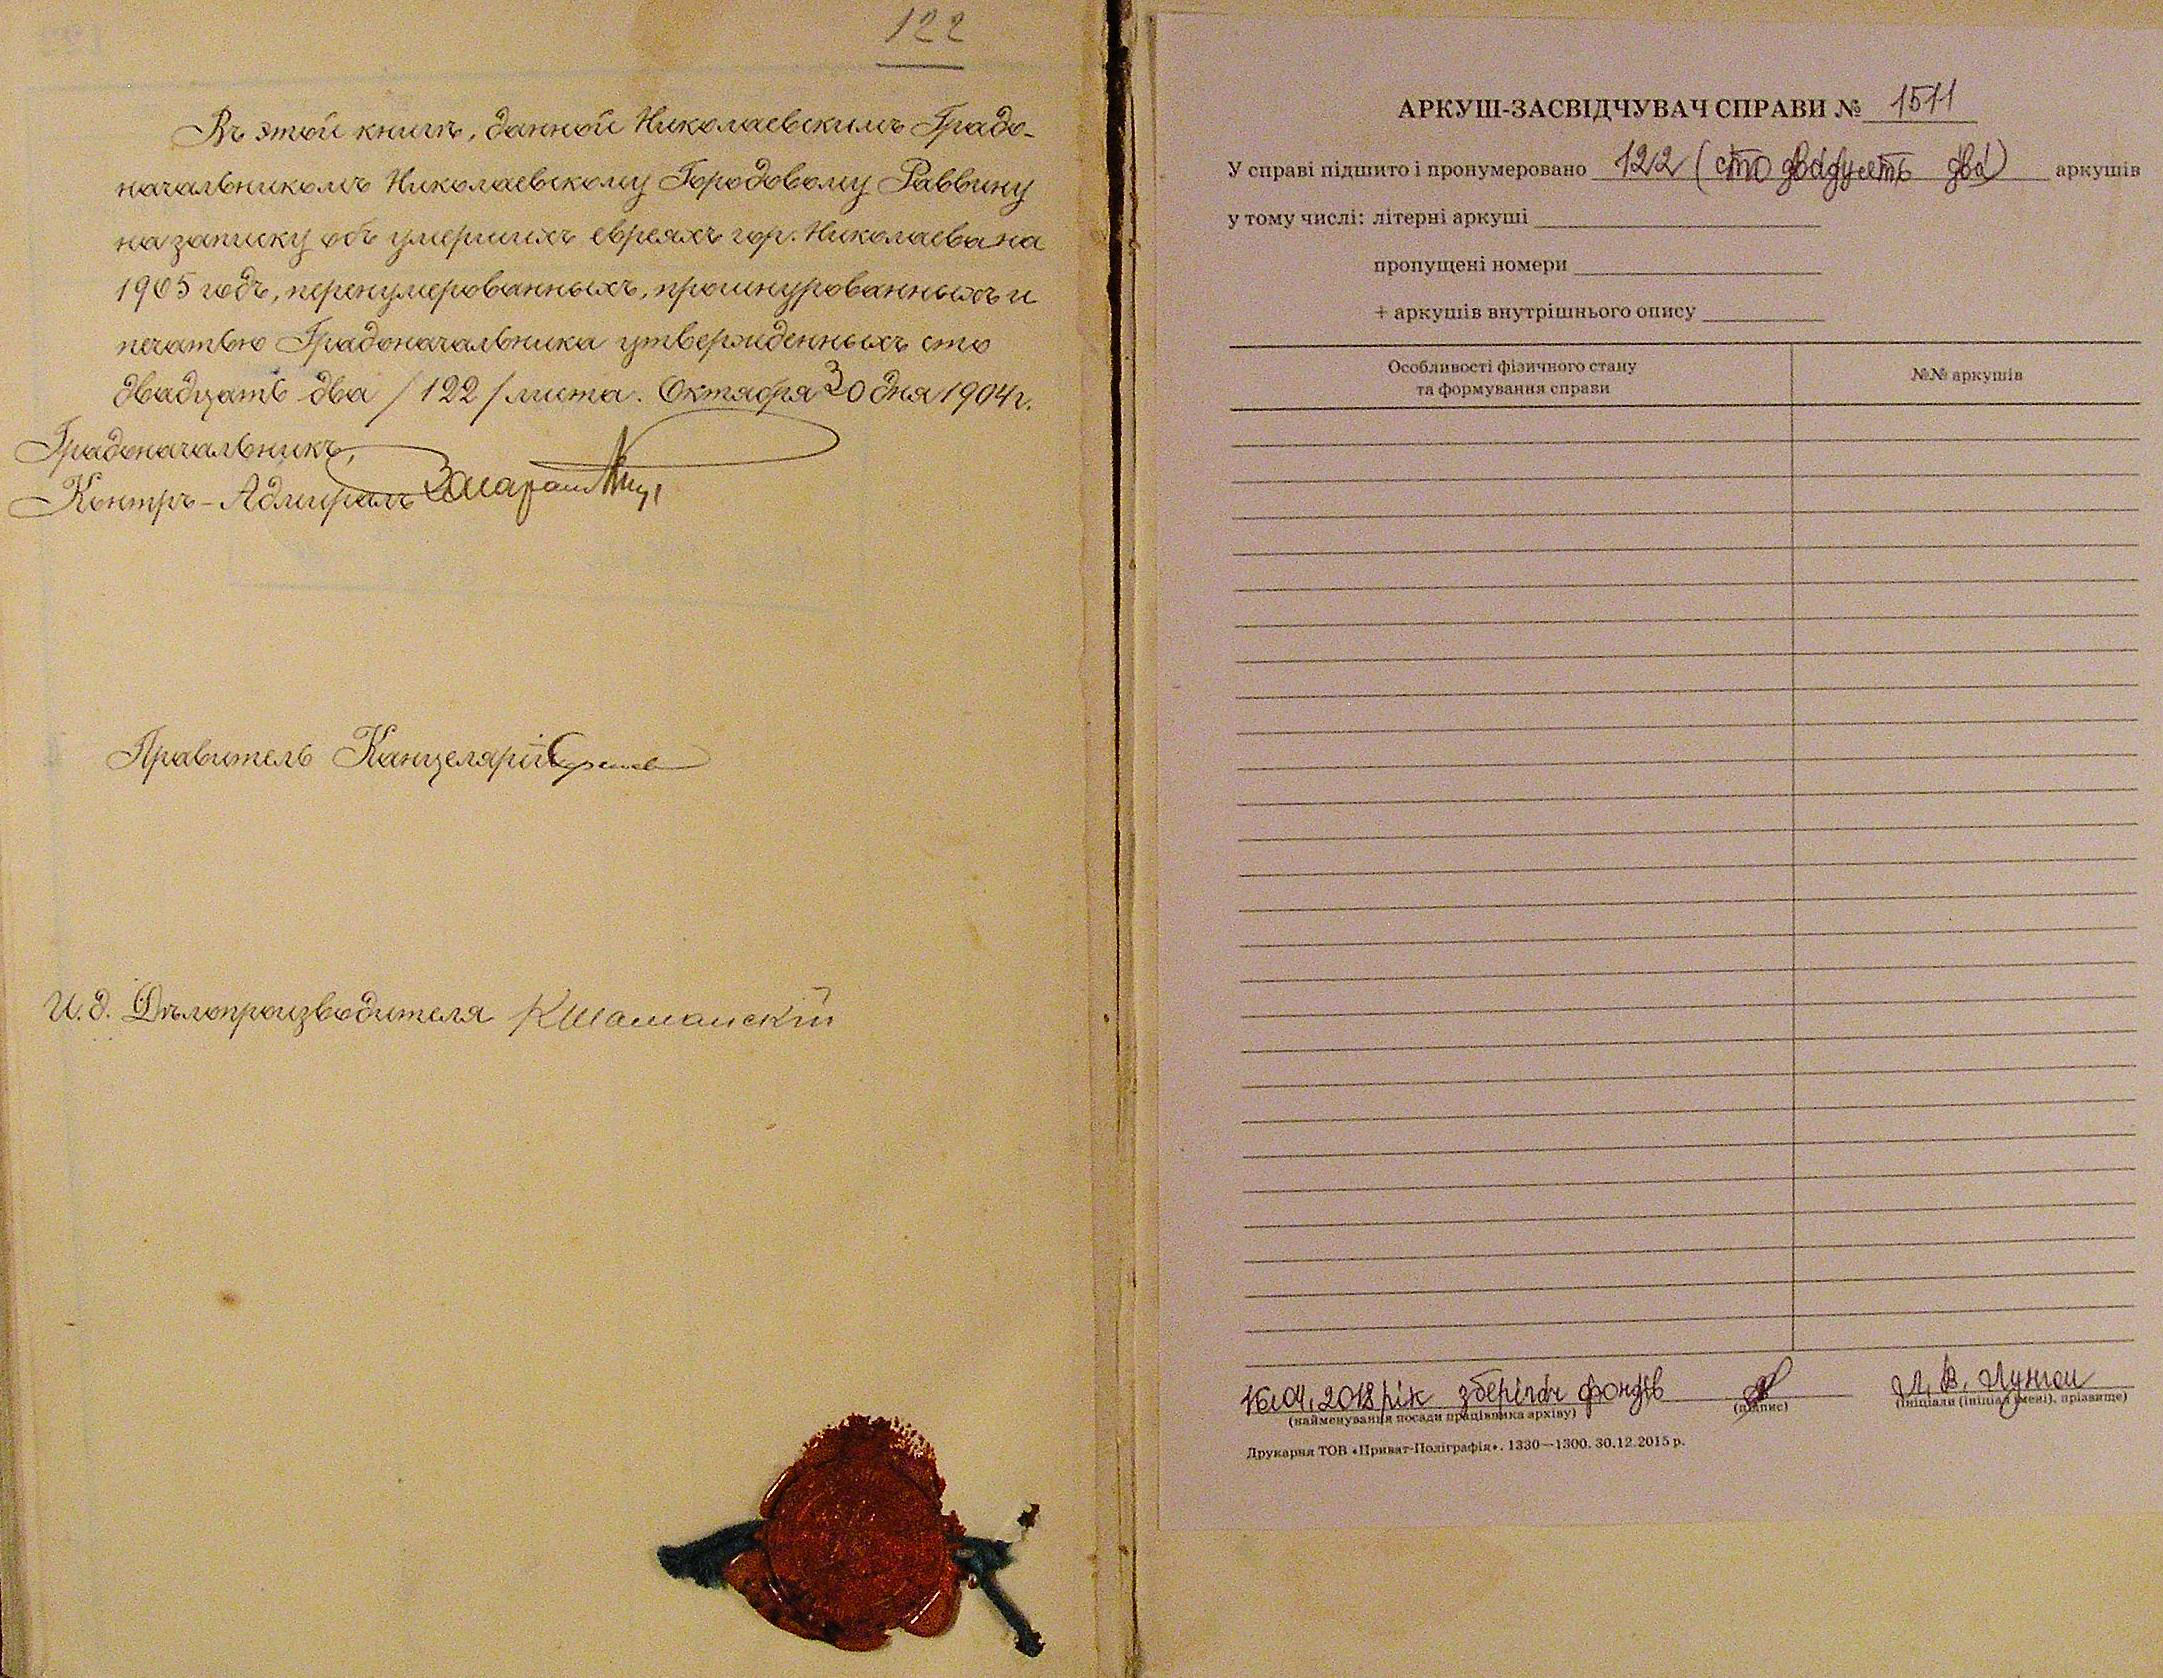 122
Въ этой книгѣ, данной Николаевскимъ Градо-
начальникомъ Николаевскому Городовому Раввину
на записку объ умершихъ евреяхъ гор. Николаева на
1905 годъ, перенумерованныхъ, прошнурованныхъ и
печатью Градоначальника утвержденныхъ сто
двадцать два /122/ листа. Октября 30 дня 1904 г.
Градоначальникъ,
Контръ-Адмиралъ
Правитель Канцеляріи
И. д. Дѣлопроизводителя КШаманскій
АРКУШ-ЗАСВІДЧУВАЧ СПРАВИ № 1511
У справі підшито і пронумеровано 122 (сто двадцять два) аркушів
у тому числі: літерні аркуші
пропущені номери
+ аркушів внутрішнього опису
Особливості фізичного стану
та формування справи
№№ аркушів
16.04.2018 рік зберігач фондів
(найменування посади працівника архіву)
(підпис)
(ініціали (ініціал імені), прізвище)
Друкарня ТОВ «Приват-Поліграфія». 1330—1300. 30.12.2015 р.